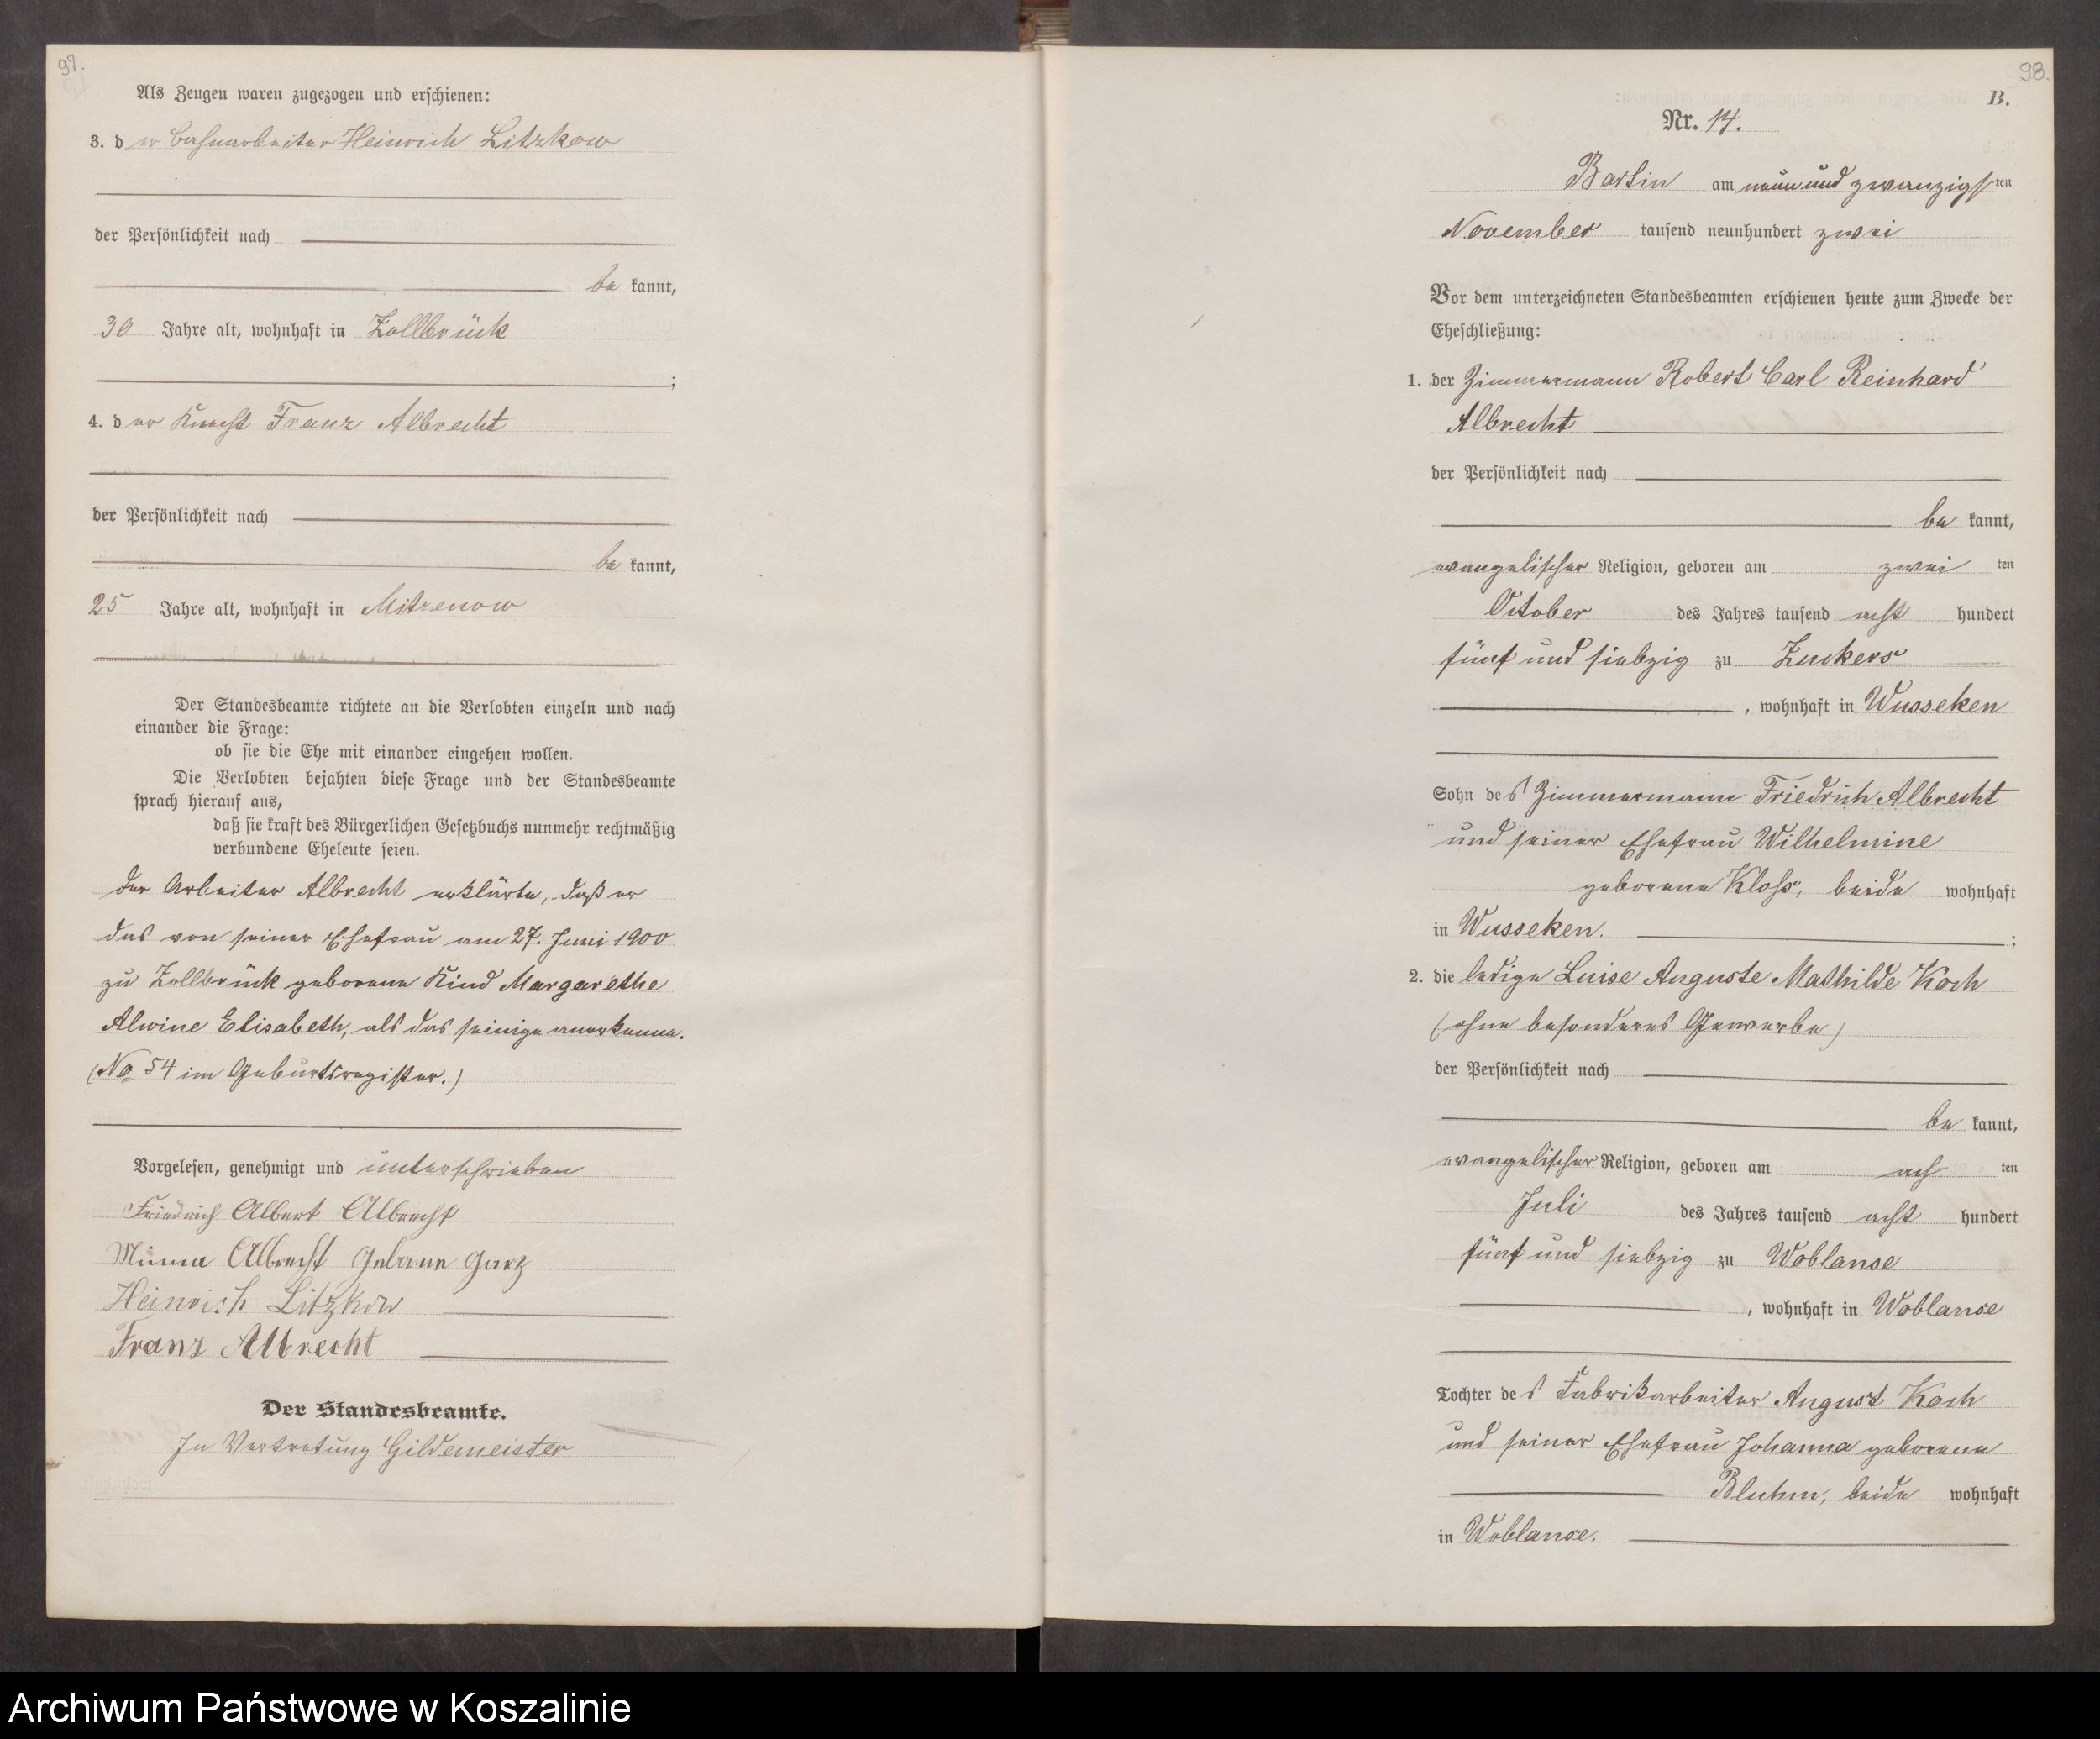 97.
Als Zeugen waren zugezogen und erschienen:
3. der Bahnarbeiter Heinrich Litzkow
der Persönlichkeit nach
be kannt,
30 Jahre alt, wohnhaft in Zollbrück
;
4. der Knecht Franz Albrecht
der Persönlichkeit nach
be kannt,
25 Jahre alt, wohnhaft in Mitzenow
Der Standesbeamte richtete an die Verlobten einzeln und nach
einander die Frage:
ob sie die Ehe mit einander eingehen wollen.
Die Verlobten bejahten diese Frage und der Standesbeamte
sprach hierauf aus,
daß sie kraft des Bürgerlichen Gesetzbuchs nunmehr rechtmäßig
verbundene Eheleute seien.
Der Arbeiter Albrecht erklärte, daß er
das von seiner Ehefrau am 27. Juni 1900
zu Zollbrück geborene Kind Margarethe
Alwine Elisabeth, als das seinige anerkenne.
(No 54 im Geburtsregister.)
Vorgelesen, genehmigt und unterschrieben
Friedrich Albert Albrecht
Minna Albrecht geborene Garz
Heinrich Litzkow
Franz Albrecht
Der Standesbeamte.
In Vertretung Gildemeister
98.
B.
Nr. 14.
Bartin am neun und zwanzigsten
November tausend neunhundert zwei
Vor dem unterzeichneten Standesbeamten erschienen heute zum Zwecke der
Eheschließung:
1. der Zimmermann Robert Carl Reinhard
Albrecht
der Persönlichkeit nach
be kannt,
evangelischer Religion, geboren am zwei ten
October des Jahres tausend acht hundert
fünf und siebzig zu Zuckers
, wohnhaft in Wusseken
Sohn des Zimmermann Friedrich Albrecht
und seiner Ehefrau Wilhelmine
geborene Kloss, beide wohnhaft
in Wusseken. ;
2. die ledige Luise Auguste Mathilde Koch
(ohne besonderes Gewerbe)
der Persönlichkeit nach
be kannt,
evangelischer Religion, geboren am ach ten
Juli des Jahres tausend acht hundert
fünf und siebzig zu Woblanse
, wohnhaft in Woblanse
Tochter des Fabrikarbeiter August Koch
und seiner Ehefrau Johanna geborene
Bluhm, beide wohnhaft
in Woblanse.
Archiwum Państwowe w Koszalinie